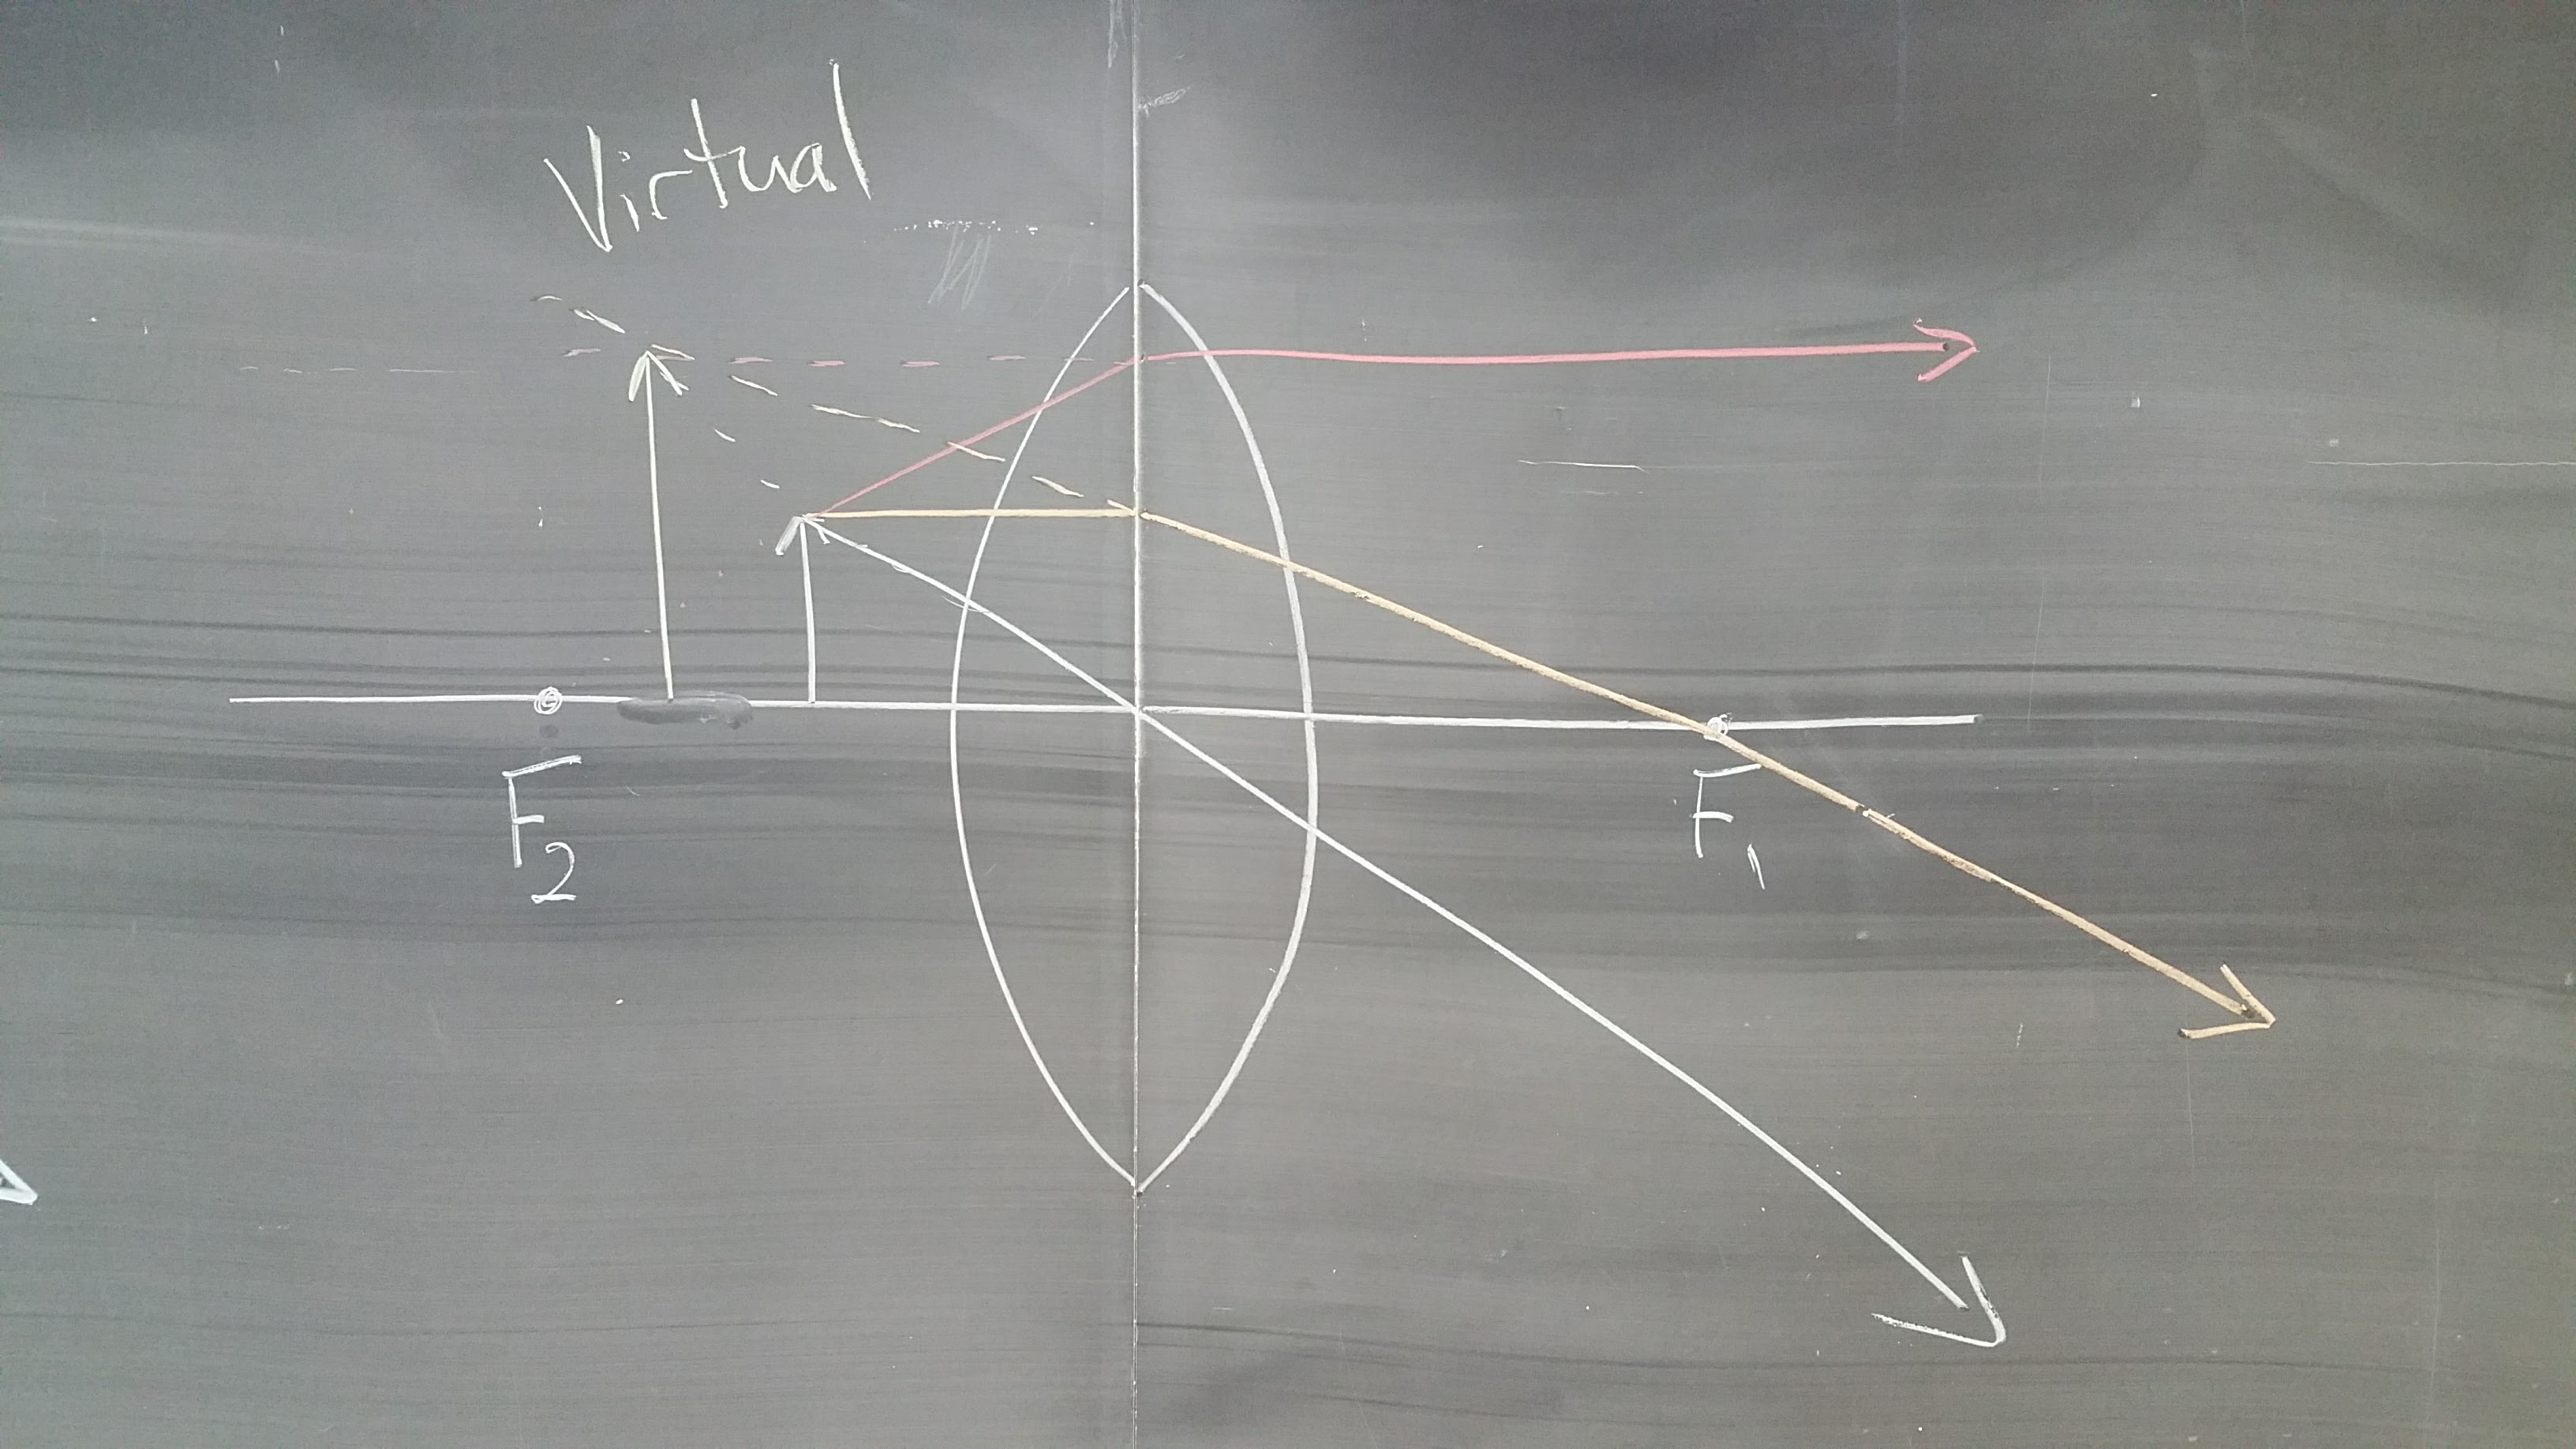 Virtual
F2
F1